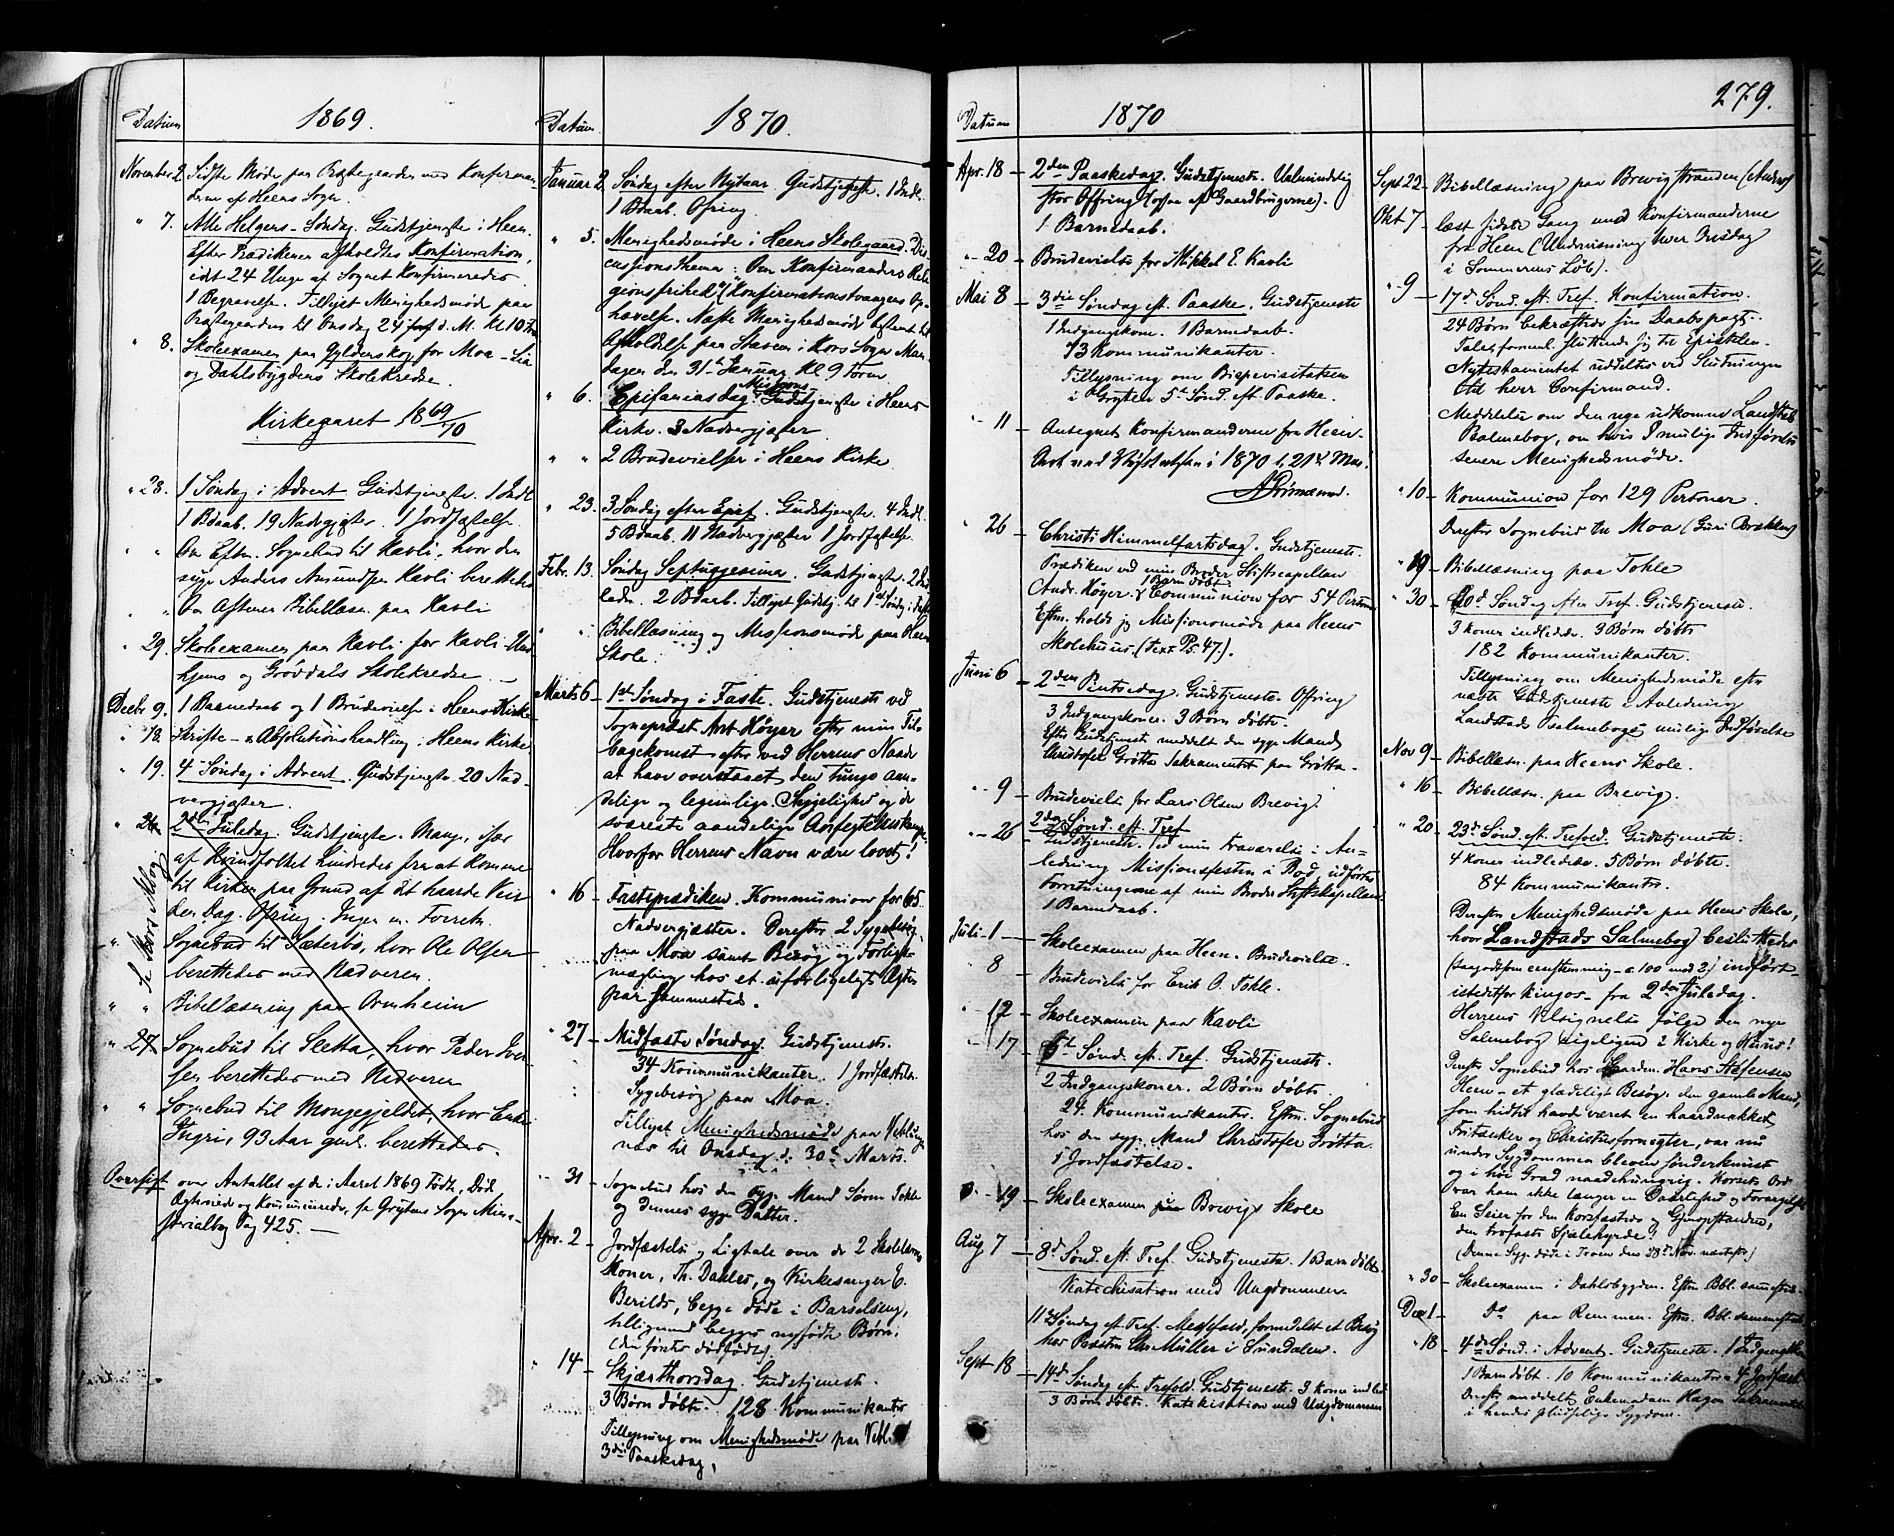 279.
Datum
1869.
November 2. Sidste Møde paa Præstegaarden med Konfirman-
derne af Heens Sogn.
" 7. Alle Helgens-Søndag. Gudstjeneste i Heen.
Efter Prædikenen afholdtes Konfirmation,
idet 24 Unge af Sognet Konfirmeredes.
1 Begravelse. Tillyst Menighedsmøde paa
Præstegaarden til Onsdag 24 d. M. Kl 10 Fm
" 8. Skoleexamen paa Gylderskog for Moa - Lia
og Dahlsbygdens Skolekredse.
Kirkeaaret 1869/70
" 28. 1 Søndag i Advent. Gudstjeneste. 1 Indl.
1 Bdaab. 19 Nadvergjæster. 1 Jordfæstelse.
" " Om Eftm. Sognebud til Kavli, hvor den
syge Anders Amundsen Kavli berettedes
" Om Aftenen Bibellæsn. paa Kavli
" 29. Skoleexamen paa Kavli for Kavli-Und-
hjems og Grøvdals Skolekredse.
Decbr 9. 1 Barnedaab og 1 Brudevielse i Heens Kirke
" 18. Skrifte- & Absolutionshandling i Heens Kirke
" 19. 4 Søndag i Advent. Gudstjeneste. 20 Nad-
vergjæster.
" 26. 2den Juledag. Gudstjeneste. Mange, især
af Kvindfolket hindredes fra at komme
til Kirken paa Grund af det haarde Veir
den Dag. Ofring. Ingen m. Forretn.
" Sognebud til Sæterbø, hvor Ole Olsen
berettedes med Nadveren.
" " Bibellæsning paa Ornheim
" 27. Sognebud til Sletta, hvor Peder Iver-
sen berettedes med Nadveren
" " Sognebud til Mongegjeldet, hvor Enken
Ingri, 93 Aar gml. berettedes.
Oversigt over Antallet af de i Aaret 1869 Fødte, Døde
Ægteviede og Kommunicerede, se Grytens Sogns Mini-
sterialbog Pag 425.
Datum
1870.
Januar 2. Søndag efter Nytaar. Gudstjeneste. 1 Indl.
1 Bdaab. Ofring.
" 5. Menighedsmøde i Heens Skolegaard. Dis-
cussionsthema: "Om Konfirmanders Reli-
gionsfrihed" (Konfirmationstvangens Op-
hævelse. Næste Menighedsmøde bestemt til
Afholdelse paa Havnen i Kors Sogn Man-
dagen den 31te Januar Kl 9 Form
" 6. Epifaniasdag. Missions Gudstjeneste i Heens
Kirke. 3 Nadvergjæster
" " 2 Brudevielser i Heens Kirke
" 23. 3 Søndag efter Epif. Gudstjeneste. 4 Indl.
5 Bdaab. 11 Nadvergjæster 1 Jordfæstelse.
Febr. 13. Søndag Septuagesima. Gudstjeneste. 2 Ind-
ledn. 2 Bdaab. Tillyst Gudstj. til 1ste Søndag i Faste
" " Bibellæsning og Missionsmøde paa Heens
Skole.
Marts 6 - 1ste Søndag i Faste. Gudstjeneste ved
Sognepræst Ant Høyer efter min Til-
bagekomst efter ved Herrens Naade
at have overstaaet den tunge aan-
delige og legemlige Sygelighed og de
sværeste aandelige Anfegtelseskampe
Hvorfor Herrens Navn være lovet!
" 16 - Fasteprædiken. Kommunion for 65.
Nadvergjæster. Derefter 2 Sygebesøg,
paa Moa samt Besøg og Forligs-
mægling hos et uforligeligt Ægte-
par sammesteds.
" 27 - Midfaste Søndag. Gudstjeneste.
34 Kommunikanter. 1 Jordfæstelse.
Sygebesøg paa Moa.
Tillyst Menighedsmøde paa Veblungs-
næs til Onsdag d. 30te Marts.
" 31 - Sognebud hos den syge Mand Søren Tokle
og dennes syge Datter.
Apr. 2 - Jordfæstelse og Ligtale over de 2 Skolelæreres
Koner, Th. Dahles, og Kirkesanger E.
Berilds, begge døde i Barselseng,
tilligemed begges nyfødte Børn.
(den førstes dødfødte)
" 14 - Skjærthorsdag. Gudstjeneste.
3 Børn døbte. 128 Kommunikanter
Tillysning om Menighedsmøde paa Vebl.
3die Paaskedag.
Datum
1870
Apr. 18 - 2den Paaskedag. Gudstjeneste. Ualmindelig
stor Offring (ogsaa af Gaardbrugerne).
1 Barnedaab.
" 20 - Brudevielse for Mikkel E. Kavli
Mai 8 - 3die Søndag eft. Paaske. Gudstjeneste
1 Indgangskone. 1 Barnedaab.
73 Kommunikanter.
Tillysning om Bispevisitatsen
i Gryten 5te Sønd. eft. Paaske.
" 11 Antegnet Konfirmanderne fra Heen.
21de Mai
" 26 Christi Himmelfartsdag. Gudstjeneste.
Prædiken ved min Broder Stiftscapellan
Andr. Høyer. 1 Barn døbt. Communion for 54 Personer
Eftm. holdt jeg Missionsmøde paa Heens
Skolehuus (Text Ps. 47).
Juni 6 - 2den Pintsedag. Gudstjeneste. Offring
3 Indgangskoner. 3 Børn døbte.
Efter Gudstjeneste meddelt den syge Mand
Christofer Grøtta Sakramentet paa Grøtta.
" 9 - Brudevielse for Lars Olsen Brevig.
" 26 - 2den Sønd. eft. Tref
Gudstjeneste. Ved min Fraværelse i An-
ledning Missionsfesten i Bod udførtes
Forretningerne af min Broder Stiftskapellan.
1 Barnedaab.
Juli 1 - Skoleexamen paa Heen. Brudevielse.
8 - Brudevielse for Erik O. Tokle.
" 12 - Skoleexamen paa Kavli
" 17 - 5te Sønd. eft. Tref. Gudstjeneste
2 Indgangskoner. 2 Børn døbte.
24. Kommunikanter. Eftm. Sognebud
hos den syge Mand Christofer Grøtta.
1 Jordfæstelse.
" 19 - Skoleexamen paa Brevigs Skole
Aug 7 - 8de Sønd. eft. Tref. Gudstjeneste. 1 Barn døbt.
Katechisation med Ungdommen.
11te Søndag eft Tref Messefald, formedelst et Besøg
hos Præsten Chr Müller i Sundalen.
Sept 18 - 14de Søndag eft. Trefold. Gudstjeneste. 3 Koner indled.
3 Børn døbte. Katekisation med Ungdommen
Sept 22 - Bibellæsning paa Brevigstranden (Anders)
Okt 7 - læst sidste Gang med Konfirmanderne
fra Heen (Undervisning hver Onsdag
i Sommerens Løb).
" 9 - 17de Sønd. eft. Tref. Konfirmation.
24 Børn bekræftede sin Daabspagt.
Nytestamentet uddeltes ved Slutningen
til hver Confirmand.
Meddelelse om den nye udkomne Landstads
Psalmebog, om hvis mulige Indførelse
senere Menighedsmøde.
" 10 - Kommunion for 129 Personer.
Derefter Sognebud til Moa
" 19 - Bibellæsning paa Tokle
" 30 - 20de Søndag efter Tref Gudstjeneste.
3 Koner indledede. 3 Børn døbte
182 Kommunikanter.
Tillysning om Menighedsmøde efter
næste Gudstjeneste i Anledning
Landstads Psalmebogs mulige Indførelse
Nov 9 - Bibellæsn. paa Heens Skole.
" 16 - Bibellæsn. paa Brevig.
" 20 - 23de Sønd. eft. Trefold. Gudstjeneste.
4 Koner indledede. 5 Børn døbte.
84 Kommunikanter.
Derefter Menighedsmøde paa Heens Skole,
hvor Landstads Salmebog besluttedes
(saagodtsom eenstemmig - c. 100 mod 2) indført
istedetfor Kingos - fra 2den Juledag.
Herrens Velsignelse følge den nye
Salmebog ligeligend i Kirke og Huus!
Derefter Sognebud hos Gaardm. Hans Stefensen
Heen - et glædeligt Besøg: den gamle Mand,
som hidtil havde været en haardnakket
Fritænker og Christusfornegter, var nu
under Sygdommen bleven sønderknust
og i høi Grad naadehungrig. Korsets Ord
var ham ikke længer en Daarlighed og Forargelse
En Seier for den Korsfæstede og Gjenopstandne,
den trofaste Sjælehyrde!
(Denne Syge døde i Troen den 28de Nov. næstefter)
" 30 - Skoleexamen i Dahlsbygden. Eftm. Bbl. sammesteds
Dec 1 - Do paa Remmen. Eftm. Bbl. sammesteds
" 18 - 4de Sønd. i Advent. Gudstjeneste. 1 Indgangskone
1 Barn døbt. 10 Kommunikanter. 4 Jordfæst.
Derefter meddelt Enkemadam Hagen Sakramentet
i hendes pludselige Sygdom.